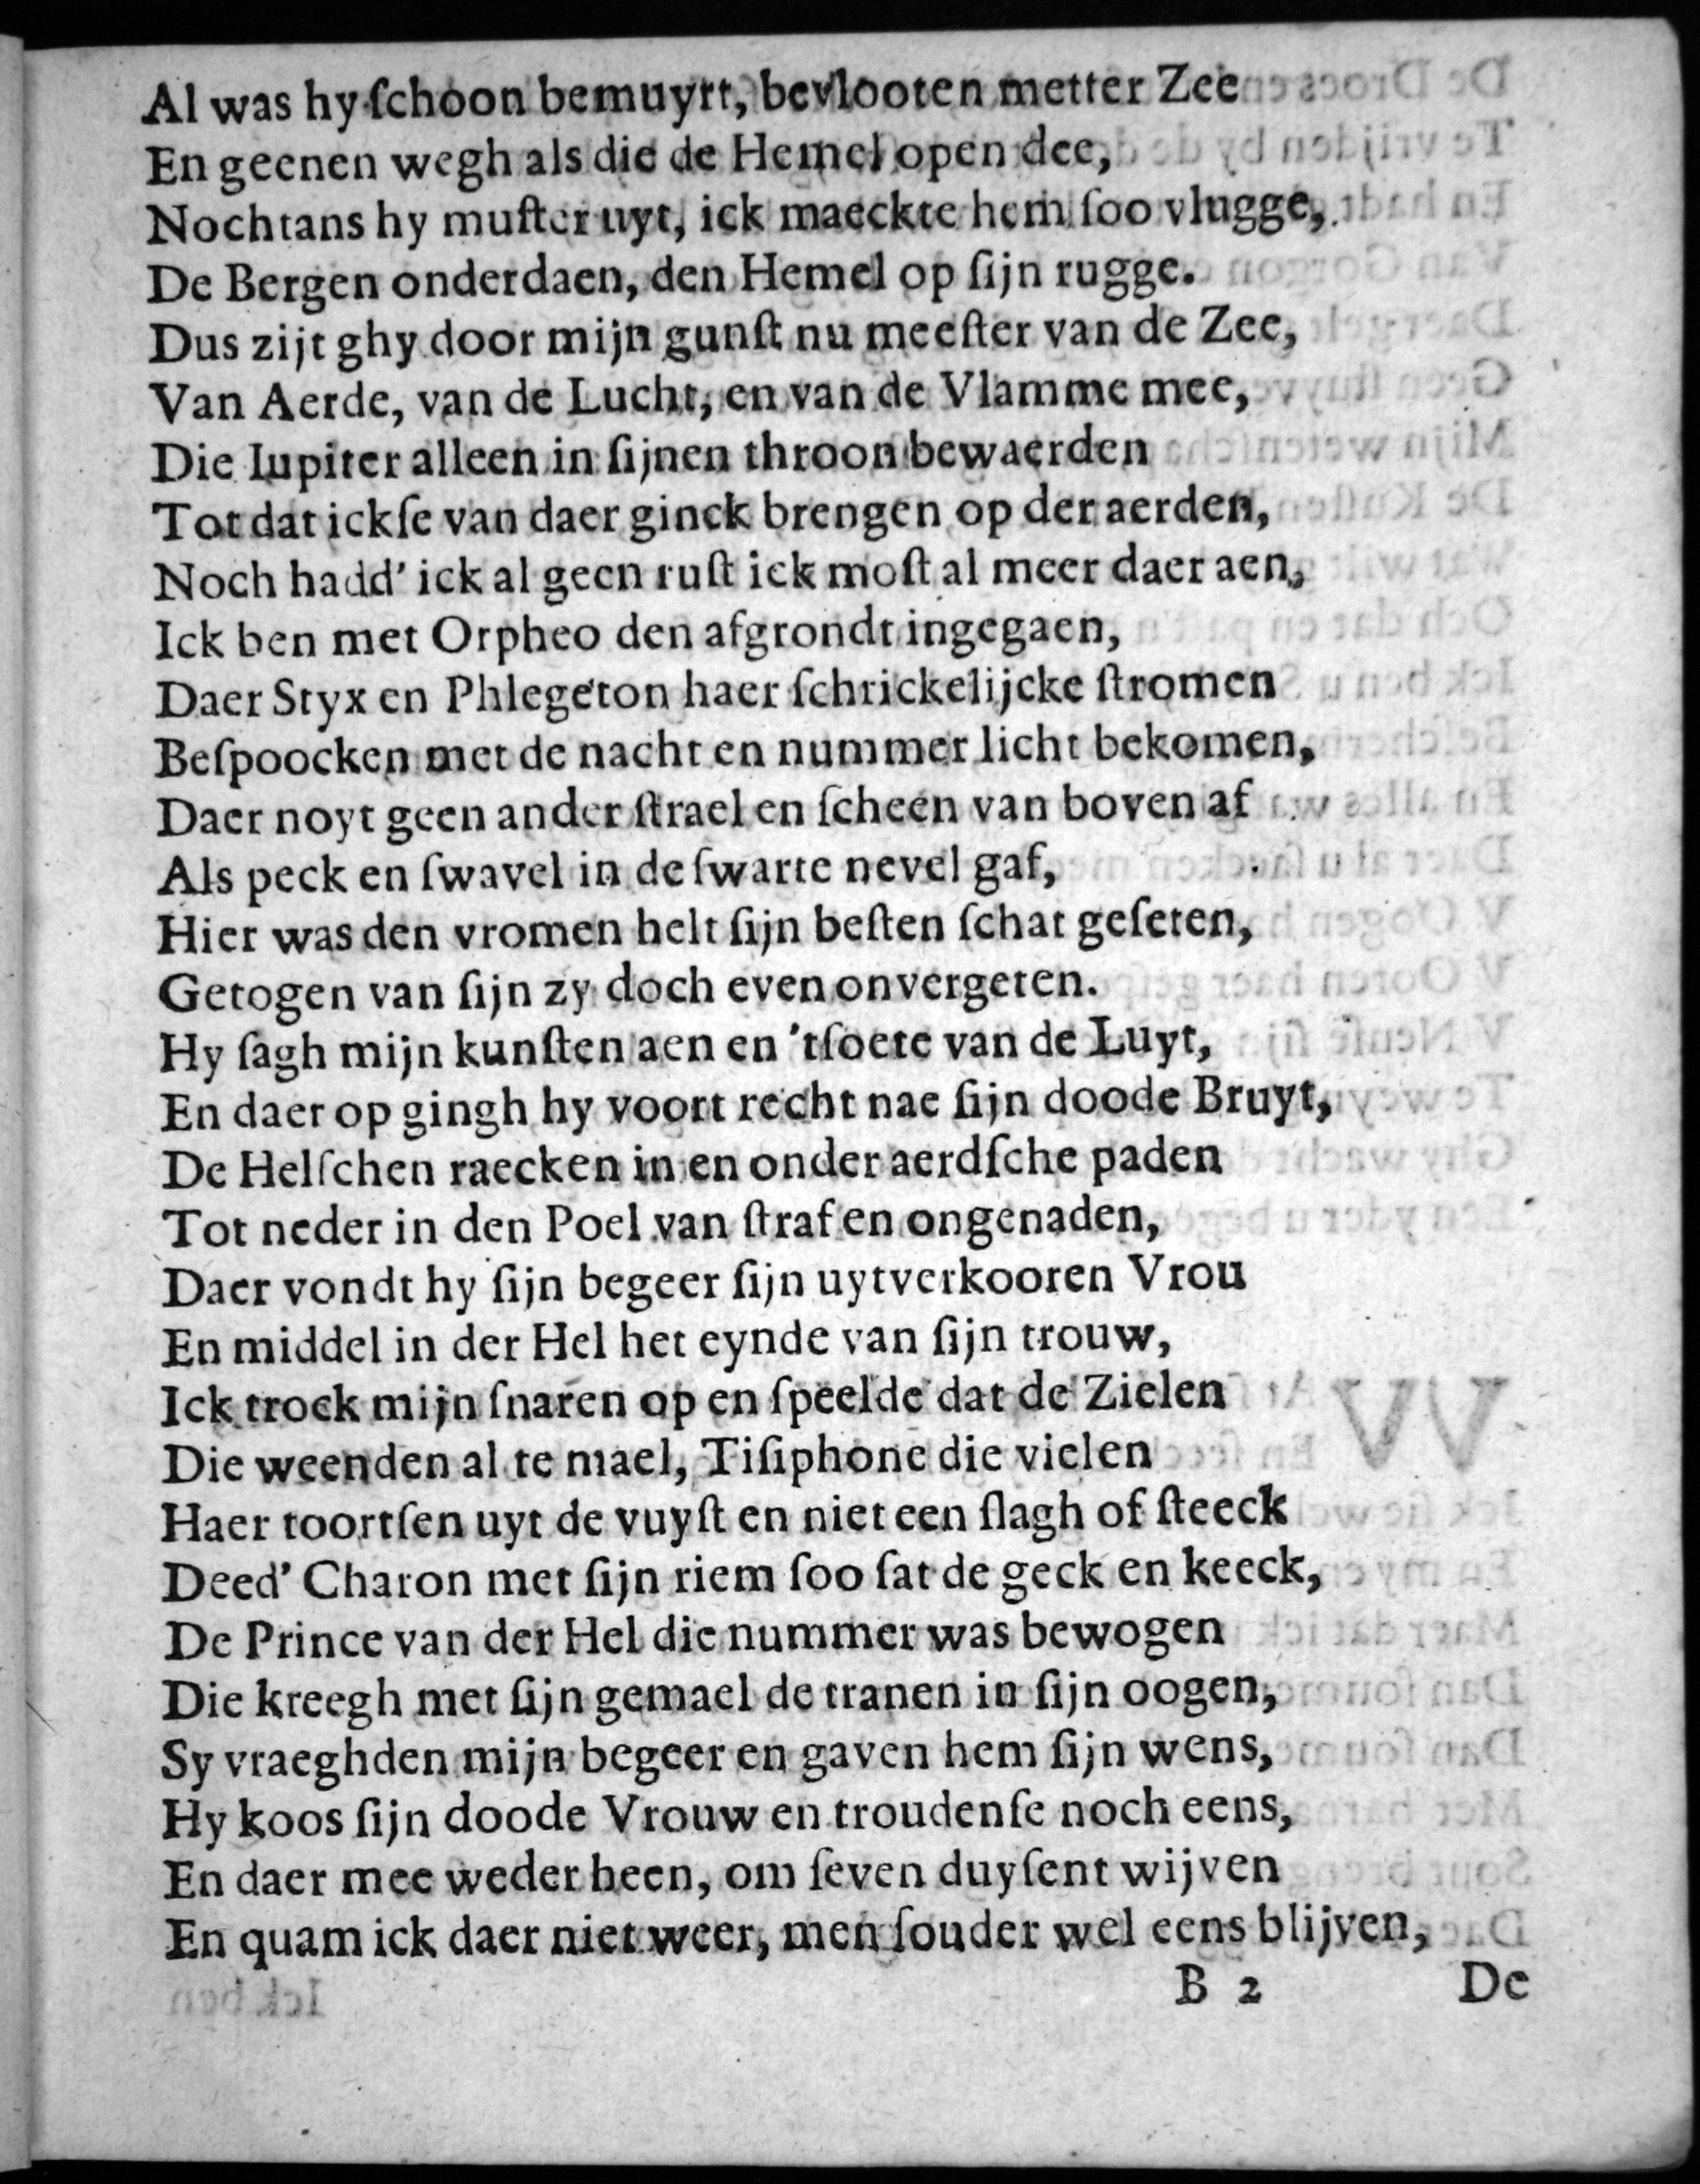 Al was hy ſchoon bemuyrt, bevlooten metter Zee
En geenen wegh als die de Hemel open dee,
Nochtans hy muſter uyt, ick maeckte hem ſoo vlugge,
De Bergen onderdaen, den Hemel op ſijn rugge.
Dus zijt ghy door mijn gunſt nu meeſter van de Zee,
Van Aerde, van de Lucht, en van de Vlamme mee,
Die Iupiter alleen in ſijnen throon bewaerden
Tot dat ickſe van daer ginck brengen op der aerden,
Noch hadd' ick al geen ruſt ick moſt al meer daer aen,
Ick ben met Orpheo den afgrondt ingegaen,
Daer Styx en Phlegeton haer ſchrickelijcke ſtromen
Beſpoocken met de nacht en nummer licht bekomen,
Daer noyt geen ander ſtrael en ſcheen van boven af
Als peck en ſwavel in de ſwarte nevel gaf,
Hier was den vromen helt ſijn beſten ſchat geſeten,
Getogen van ſijn zy doch even onvergeten.
Hy ſagh mijn kunſten aen en 'tſoete van de Luyt,
En daer op gingh hy voort recht nae ſijn doode Bruyt,
De Helſchen raecken in en onder aerdſche paden
Tot neder in den Poel van ſtraf en ongenaden,
Daer vondt hy ſijn begeer ſijn uytverkooren Vrou
En middel in der Hel het eynde van ſijn trouw,
Ick trock mijn ſnaren op en ſpeelde dat de Zielen
Die weenden al te mael, Tiſiphone die vielen
Haer toortſen uyt de vuyſt en niet een ſlagh of ſteeck
Deed' Charon met ſijn riem ſoo ſat de geck en keeck,
De Prince van der Hel die nummer was bewogen
Die kreegh met ſijn gemael de tranen in ſijn oogen,
Sy vraeghden mijn begeer en gaven hem ſijn wens,
Hy koos ſijn doode Vrouw en troudenſe noch eens,
En daer mee weder heen, om ſeven duyſent wijven
En quam ick daer niet weer, men ſouder wel eens blijven,
B 2 De